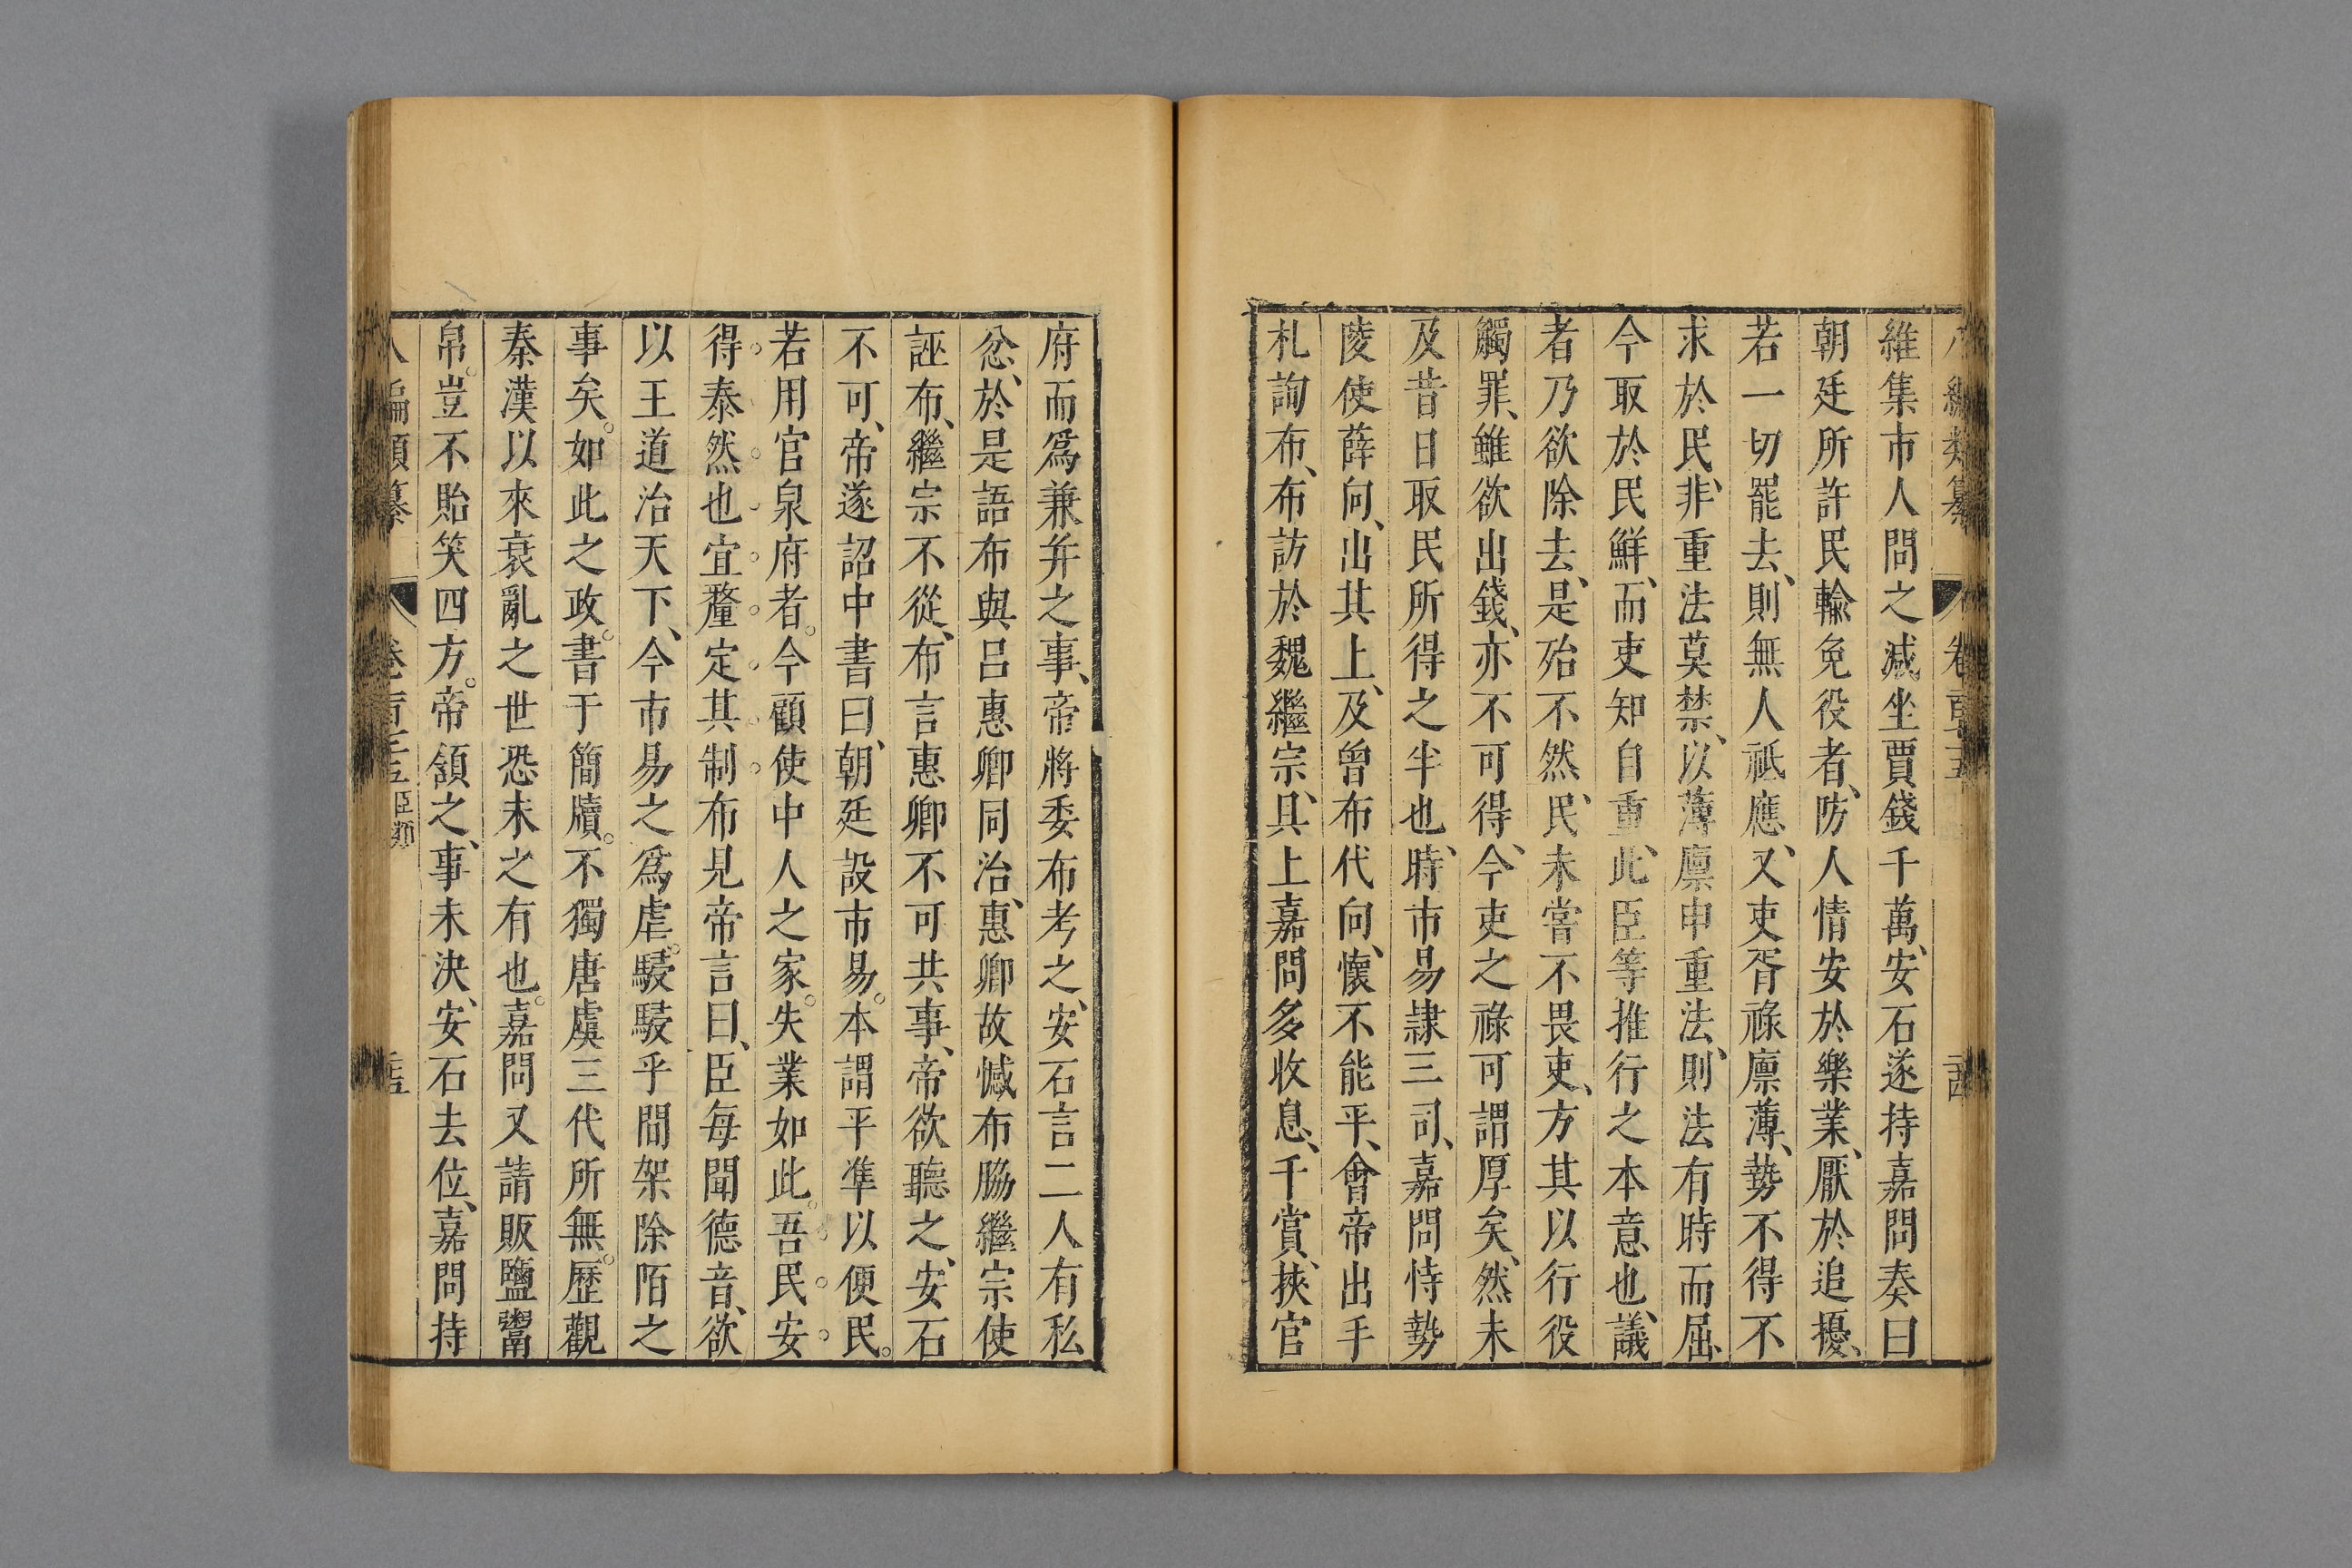 維集市人問之減坐賈錢千萬、安石遂持嘉問奏曰
朝廷所許民輸免役者、防人情安於樂業、厭於追擾、
若一切罷去、則無人祗應、又吏胥祿廪薄、勢不得不
求於民、非重法莫禁、以薄廪申重法、則法有時而屈、
今取於民鮮、而吏知自重、此臣等推行之本意也、議
者乃欲除去、是殆不然、民未嘗不畏吏、方其以行役
觸罪、雖欲出錢、亦不可得、今吏之祿可謂厚矣、然未
及昔日取民所得之半也、時市易隷三司、嘉問恃勢
陵使薛向、出其上、及曾布代向、懷不能平、會帝出手
札詢布、布訪於魏繼宗、具上嘉問多收息、千賞、挾官
府而爲兼并之事、帝將委布考之、安石言二人有私
忿、於是語布與呂惠卿同治、惠卿故憾布脇繼宗使
誣布、繼宗不從、布言惠卿不可共事、帝欲聽之、安石
不可、帝遂詔中書曰、朝廷設市易。本謂平準以便民。
若用官泉府者。今顧使中人之家。失業如此。吾民安
得泰然也宜釐定其制布見帝言曰、臣每聞德音、欲
以王道治天下、今市易之爲虐。駸駸乎間架除陌之
事矣。如此之政。書于簡牘。不獨唐虞三代所無。歷觀
秦漢以來衰亂之世恐未之有也。嘉問又請販鹽鬻
帛。豈不貽笑四方。帝頷之、事未決、安石去位、嘉問持